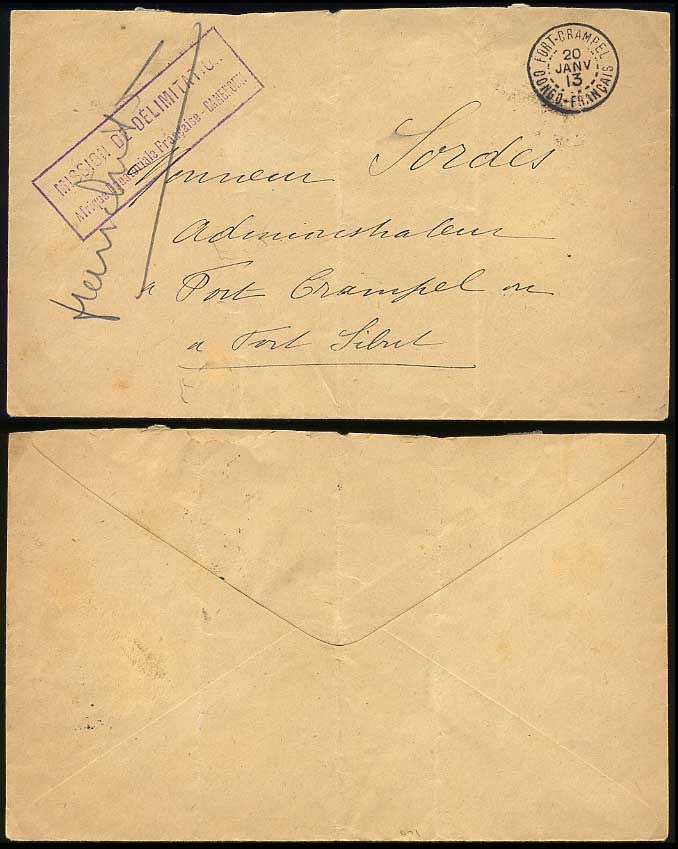 MISSION DE DÉLIMITATION
Afrique Equatoriale Française - CAMEROUN
FORT-CRAMPEL
20
JANV
13
CONGO-FRANÇAIS
Monsieur Sordes
Administrateur
a Fort Crampel ou
a Fort Sibut